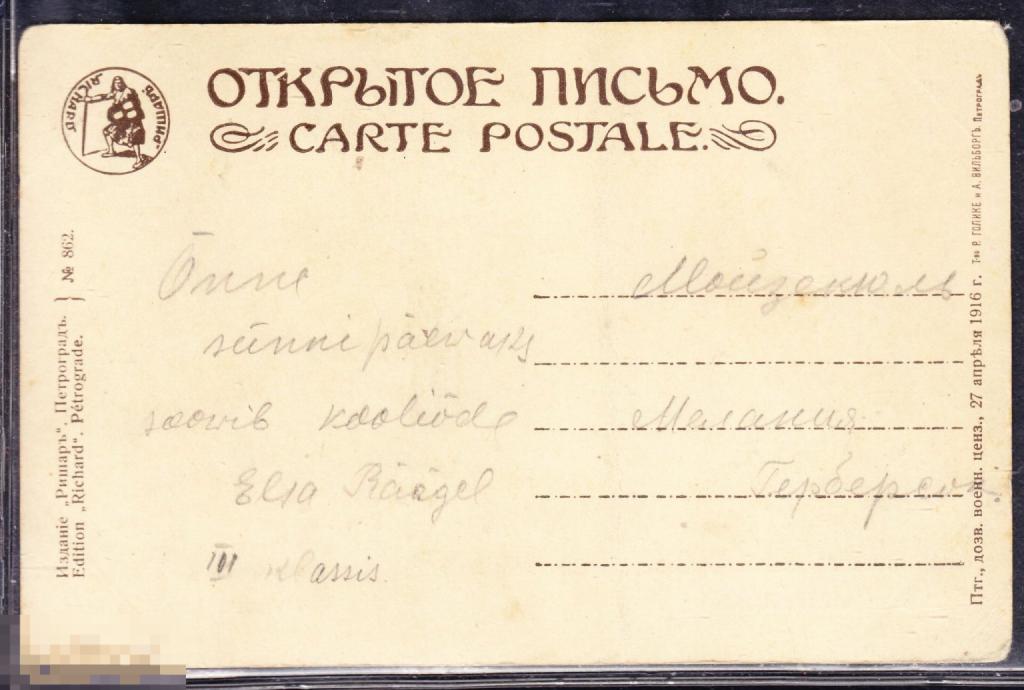 ОТКРЫТОЕ ПИСЬМО.
CARTE POSTALE.
„RICHARD“
„РИШАРЪ“
Изданіе „Ришаръ“. Петроградъ.
Edition „Richard“. Pétrograde.
№ 862.
Õnne
sünnipäevaks
soovib kooliõde
Elsa Räägel
III klassis.
Мойзекюль
Мелания
Герберсон
Птг., дозв. военн. ценз., 27 апрѣля 1916 г. Т-во Р. ГОЛИКЕ и А. ВИЛЬБОРГЪ. Петроградъ